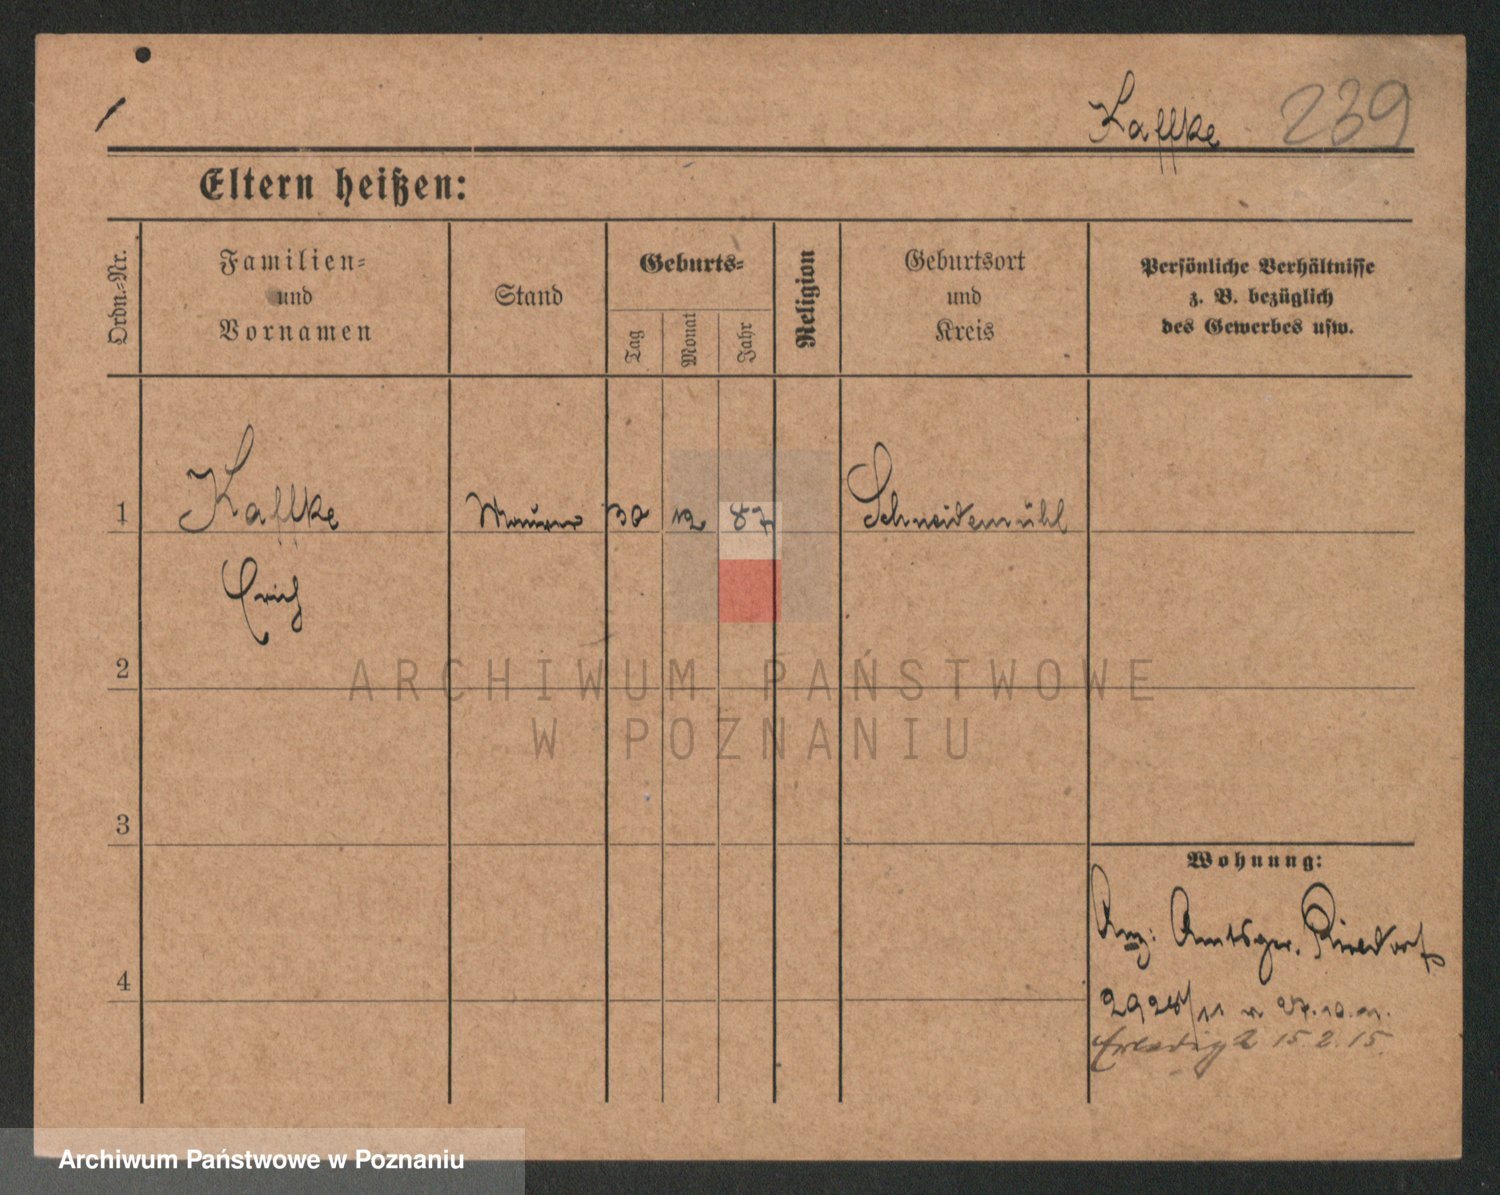 Kaffke 239
Eltern heißen:
Ordn.-Nr.
Familien-
und
Vornamen
Stand
Geburts-
Tag
Monat
Jahr
Religion
Geburtsort
und
Kreis
Persönliche Verhältnisse
z. B. bezüglich
des Gewerbes usw.
1 Kaffke Maurer 30 12 87 Schneidemühl
Erich
2
ARCHIWUM PAŃSTWOWE
W POZNANIU
3
Wohnung:
Anz: Amtsger. Rixdorf
4
2928/11 v 27.10.11.
Erledigt 15.2.15.
Archiwum Państwowe w Poznaniu